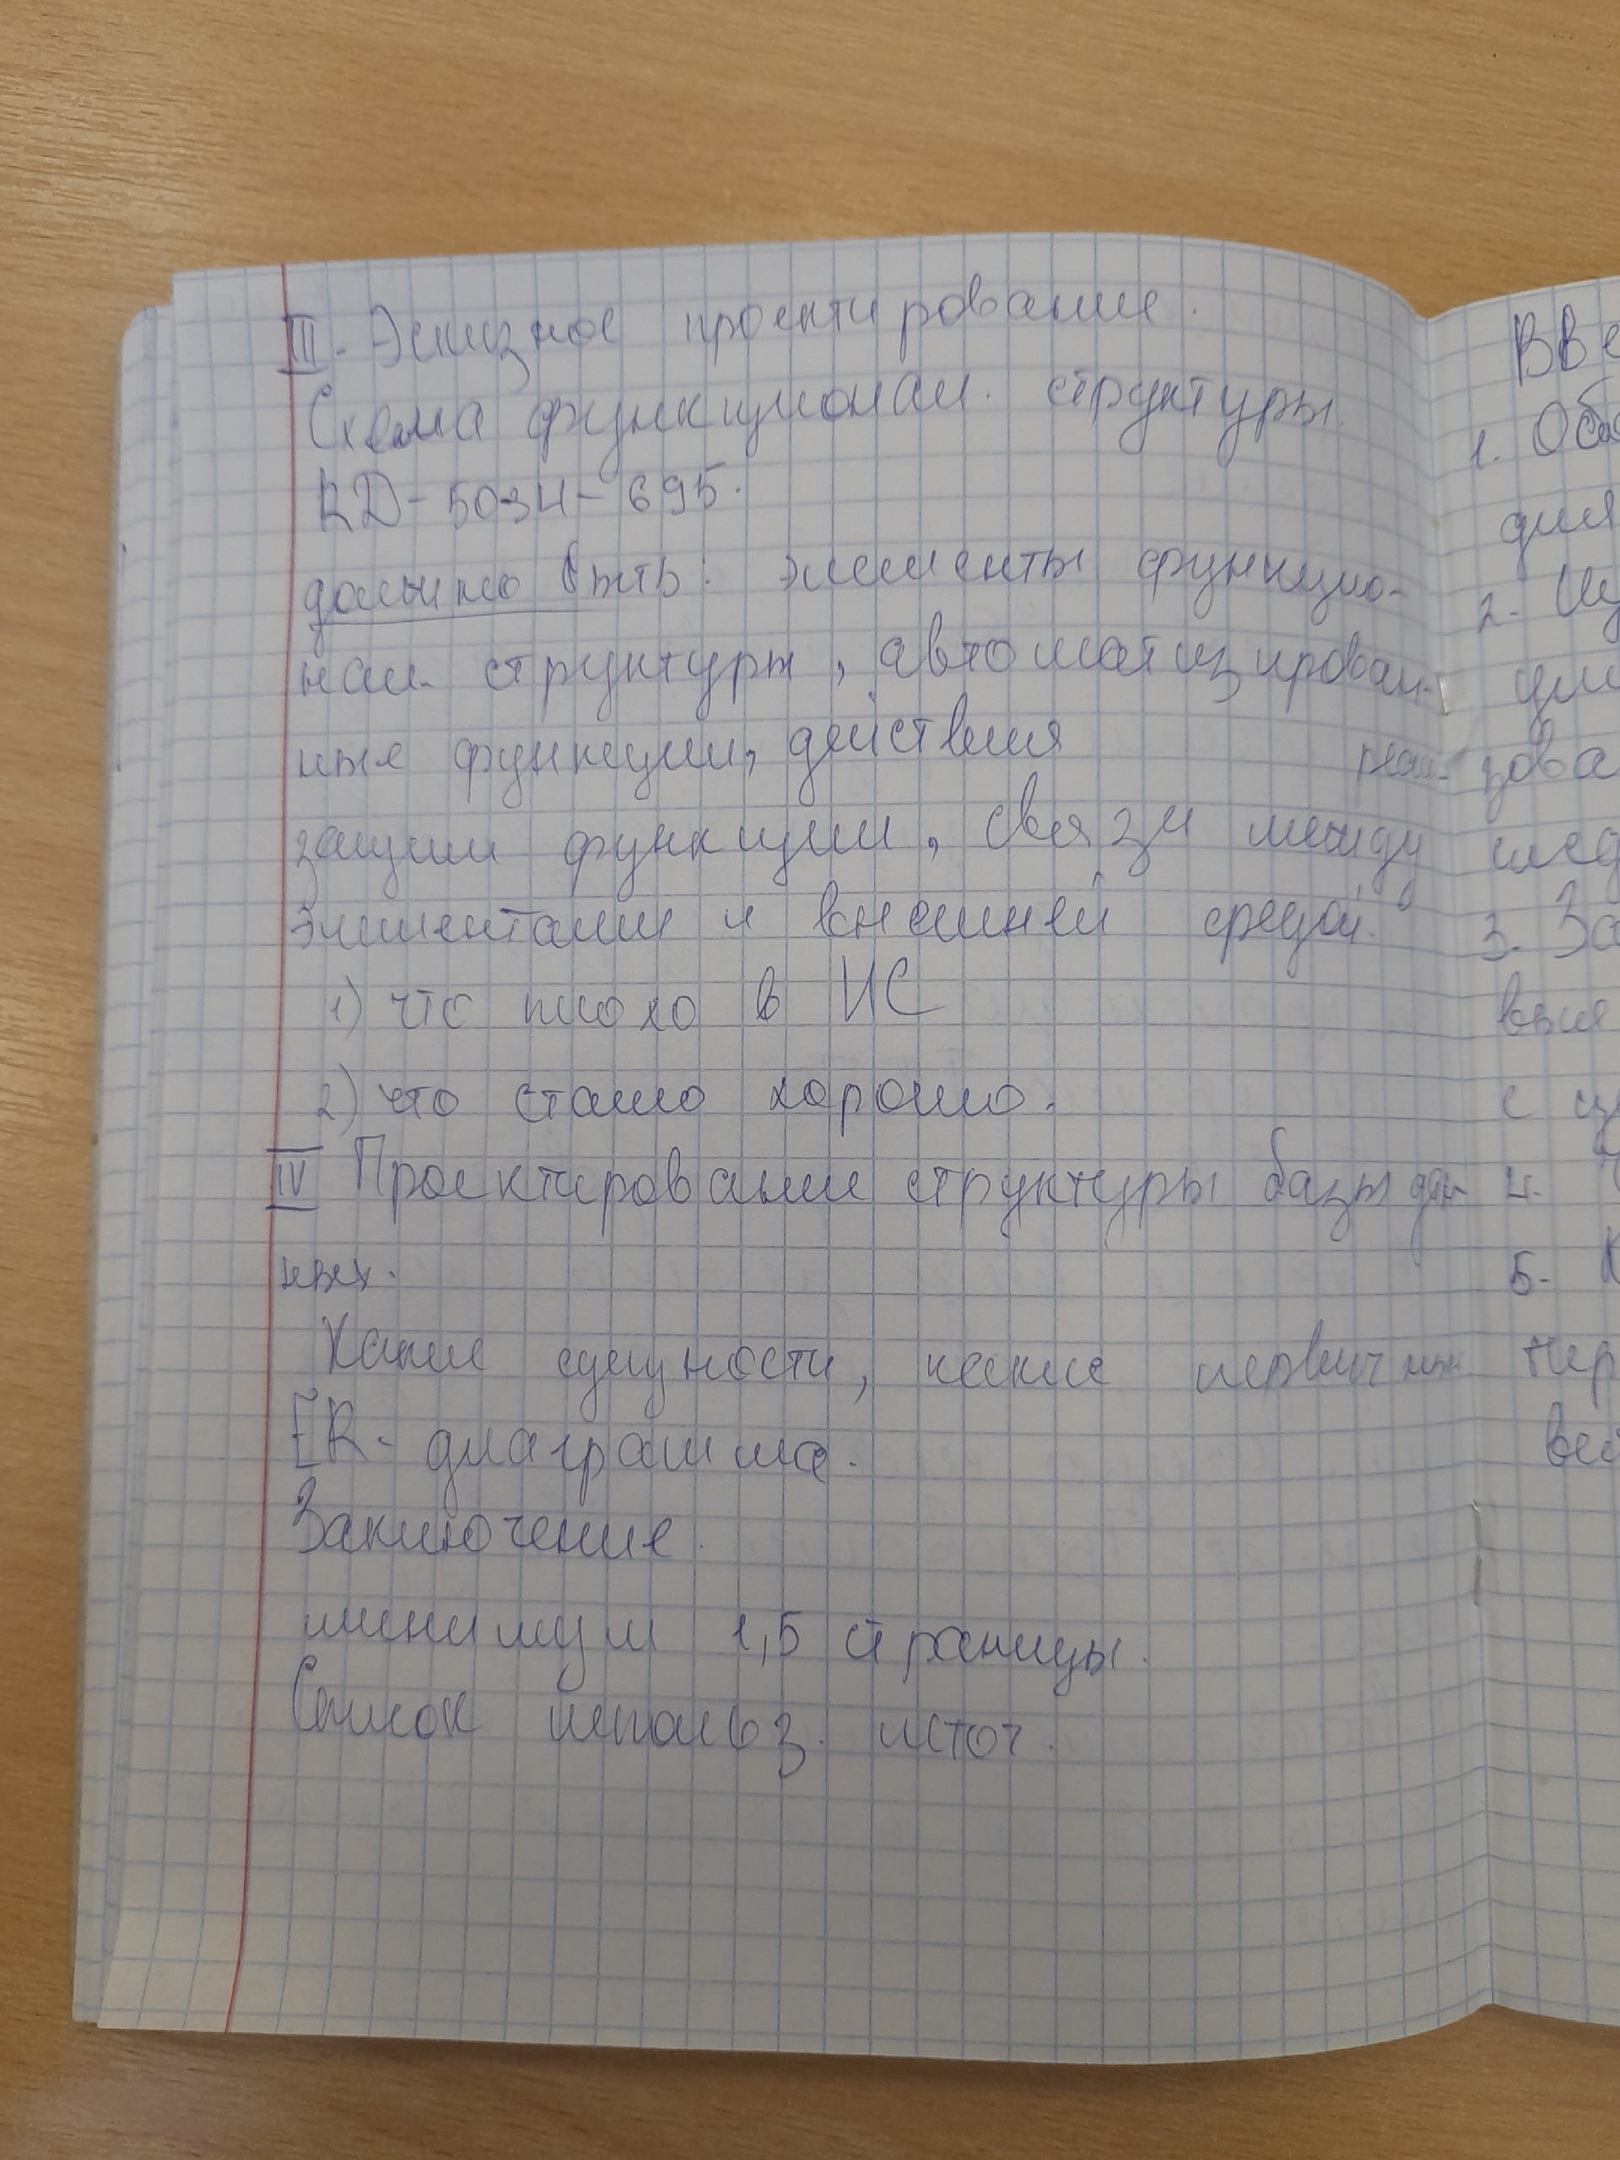 III. Эскизное проектирование.
Схема функционал. структуры.
RД-5034-695.
должно быть: элементы функцио-
нал. структуры, автоматизирован-
ные функции, действия реали-
зации функции, связи между
элементами и внешней средой.
1) что плохо в ИС
2) что стало хорошо.
IV Проектирование структуры базы дан
ных.
Какие сущности, какие первичн
ER-диаграмма.
Заключение.
минимум 1,5 страницы.
Список использ. источ.
Вве
1. Обо
для
2. Из
зова
след
3. За
с
4.
5. К